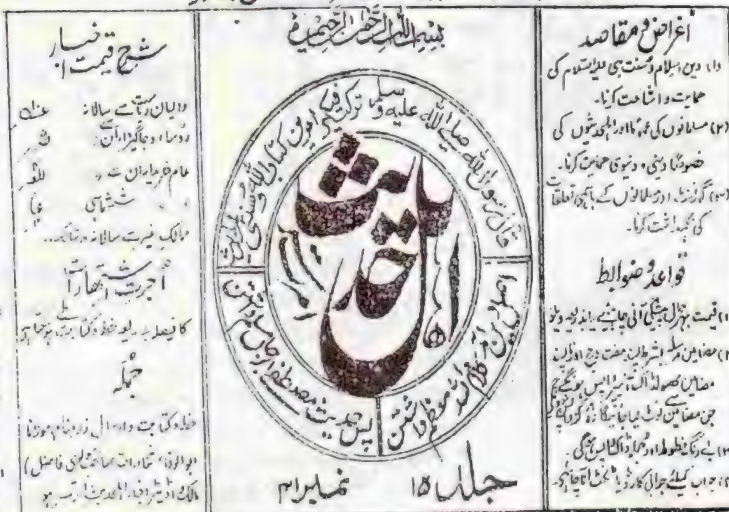 بسم اللہ الرحمن الرحیم
اغراض و مقاصد
(۱) دین اسلام و سنت نبی علیہ السلام کی
حمایت و اشاعت کرنا۔
(۲) مسلمانوں کی عموماً اور اہلحدیثوں کی
خصوصاً دینی و دنیوی حمایت کرنا۔
(۳) گورنمنٹ اور مسلمانوں کے باہمی تعلقات
کی نگہداشت کرنا۔
قواعد و ضوابط
(۱) قیمت بہرحال پیشگی آنی چاہئے
(۲) مضامین مرسلہ بشرط پسند مفت درج
جن مضامین نوٹ لیا جائیگا
(۳) بے رنگ خطوط
(۴) جواب کیلئے جوابی کارڈ یا ٹکٹ آنا چاہئے
قال رسول اللہ صلے اللہ علیہ وسلم ترکت فیکم امرین کتاب اللہ و سنتی
اہل حدیث
امرتسر
اصل دین آمد کلام اللہ معظم داشتن
پس حدیث مصطفےٰ بر جاں مسلم داشتن
جلد ۱۵ نمبر ۲۱
شرح قیمت اخبار
والیان ریاست سے سالانہ
رؤسا و جاگیرداران
عام خریداران سے
ششماہی
ممالک غیر سے سالانہ
اجرت اشتہارات
کا فیصلہ بذریعہ خط و کتابت ہو سکتا ہے
جملہ
خط و کتابت و ارسال زر بنام مولانا
ابوالوفاء ثناء اللہ صاحب (مولوی فاضل)
مالک و اڈیٹر اخبار اہلحدیث امرتسر ہو